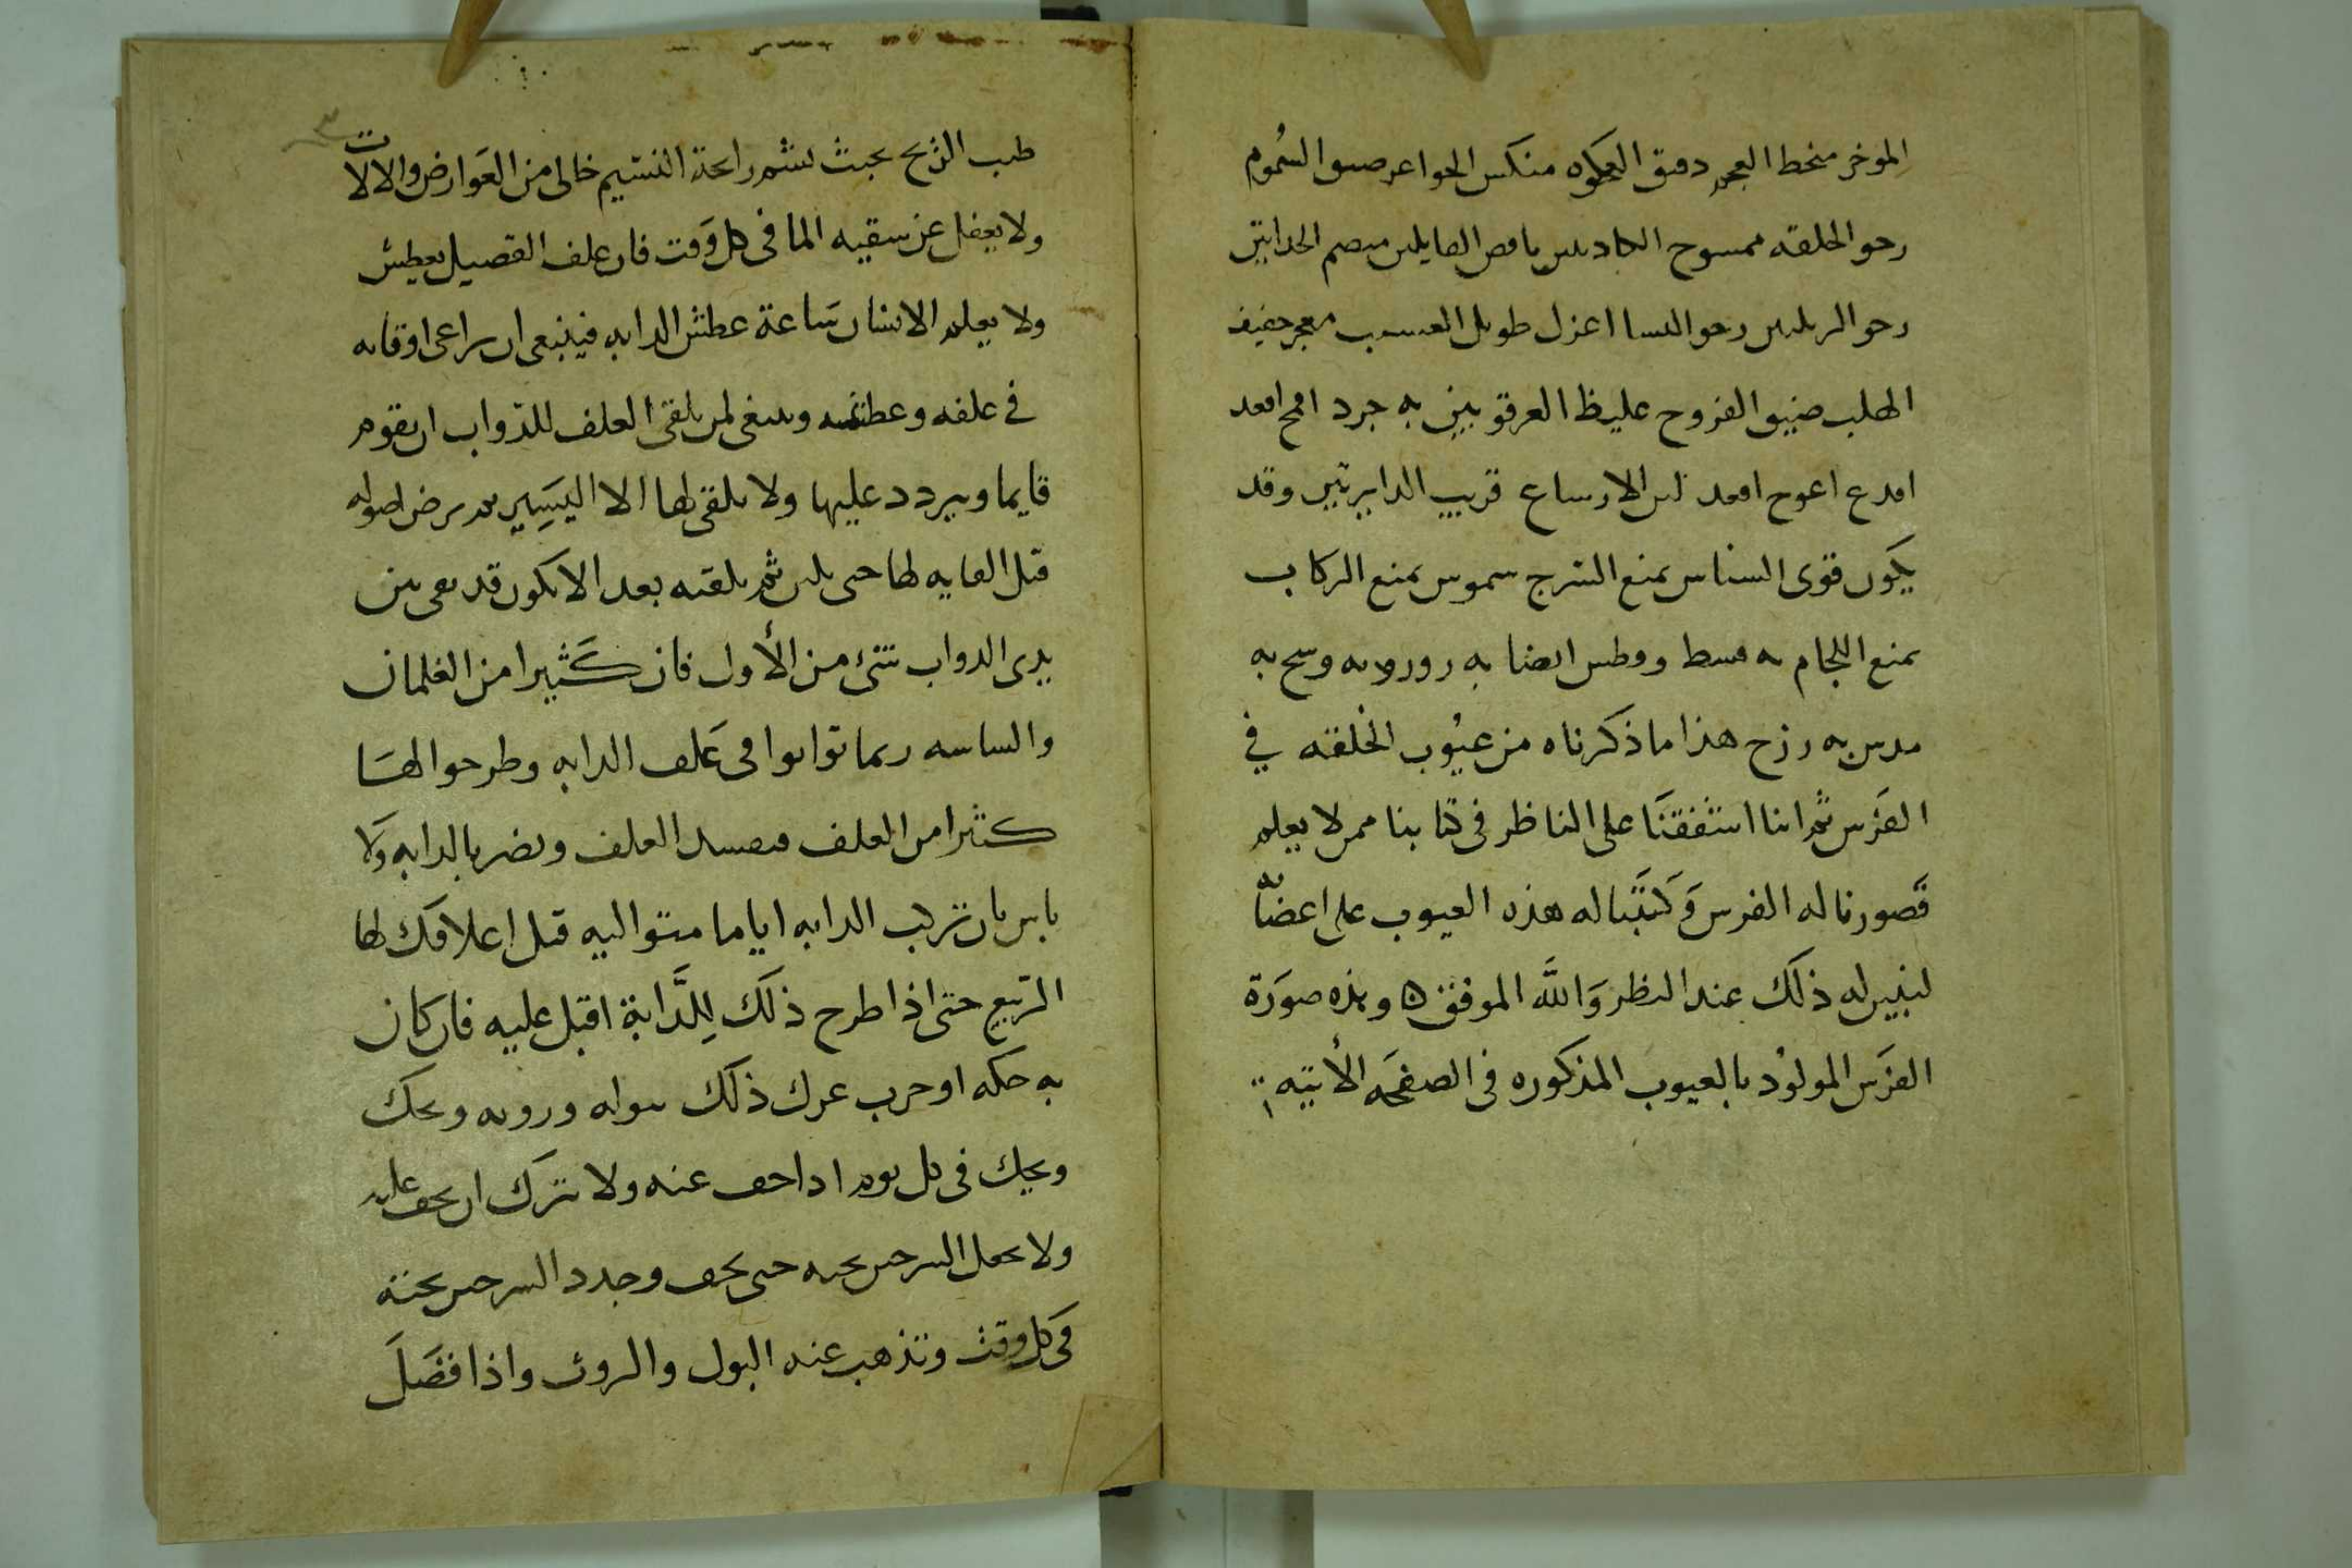 الموخر منخط العجز دقيق العكوه منكس الحواعر ضيق السُموم
رحو الخلقه ممسوح الكادتين ناقص الفايلين الحدابتين
رحو الربلتين رحو النسا اعزل طويل العسيب معجر خفيف
الهلب ضيق الفروج عليظ العرقوبين به جرد افحج اقعد
افدع اعوج اقعد الارساع قريب الدايرتين وقد
يكون قوى السناس يمنع السرج سموس يمنع الركاب
يمنع اللجام به قسط ايضا به
به رزح هذا ما ذكرناه من عيُوب الخلقه في
الفرَس ثم اننا اشفقنَا على الناظر فى كتابنا ممن لا يعلم
فَصورنا له الفرس وَكتَبنا له هذه العيوب على اعضائه
لنبين له ذلك عند النظر وَالله الموفق ه وهذه صورَة
الفرَس المولوُد بالعيوب المذكوره فى الصفحَه الأتيه
طيب الريح بحيث يشم رايحة النسيم خالى من العَوارض والالات
ولا يغفل عن سقيه الما فى كل وَقت فان علف القصيل يعطش
ولا يعلم الانسان سَاعة عطش الدابه فينبغى ان يراعى اوقاته
في علفه وعطشه وينبغى لمن يلقى العلف للدواب ان يقوم
قايما ويردد عليها ولا يلقى لها الا اليسَير بعد برض اصوله
قبل القايه لها حتى يلين ثم يلقيه بعد الا يكون قد بقى بين
يدى الدواب شئ من الأول فان كَثيرا من الغلمان
والساسه ربما توانوا فى عَلف الدابه وطرحوا لهَا
كثيرا من العلف فيفسد العلف ويضر بالدابه وَلا
باس بان تركب الدابه اياما متواليه قبل اعلافك لها
الربيع حتى اذا طرح ذلك لِلدَّابة اقبل عليه فان كان
به حكه او جرب عرك ذلك ببوله وروثه ويحك
ويحك فى كل يوم اذا جف عنه ولا يترك ان يجف عليه
ولا يجعل السرجين تحته حتى يجف وجدد السرجين تحته
فى كل وقت وتذهب عنه البول والروث واذا فضَلَ